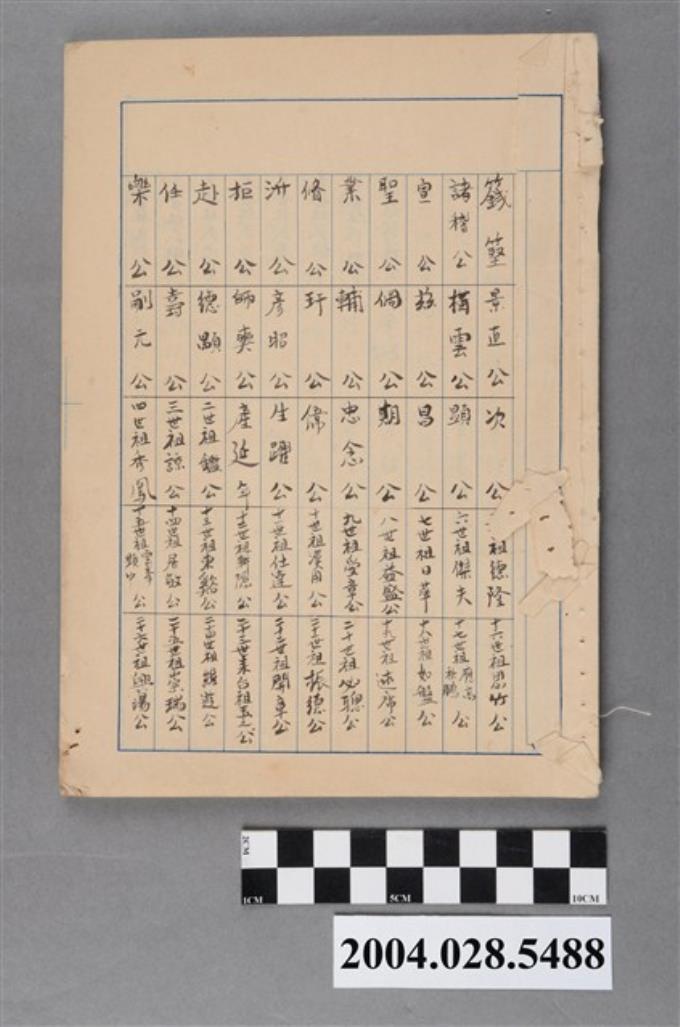 籛鏗 景直公 次公 祖德隆 十六世祖思竹公
諸稽公 楫雲公 顕公 六世祖傑夫 十七世祖 公
宣公 公 昌公 七世祖日華 十八世祖如盤公
聖公 倜公 期公 八世祖益盛公 十九世祖述席公
業公 輔公 忠念公 九世祖愛章公 二十世祖必聰公
脩公 玕公 偉公 十世祖漢用公 二十一世祖振德公
沂公 彥昭公 生躍公 十一世祖仕達公 二十二世祖聞章公
拒公 師奭公 產延年 十二世祖 隱公 二十三世來台祖五 公
赴公 德顕公 二世祖鑑公 十三世祖東谿公 二十四世祖 公
任公 壽公 三世祖諒公 十四世祖居敬公 二十五世祖崇瑞公
樂公 嗣元公 四世祖秀鳳 十五世祖 公 二十六世祖興 公
2CM
1CM 5CM 10CM
2004.028.5488